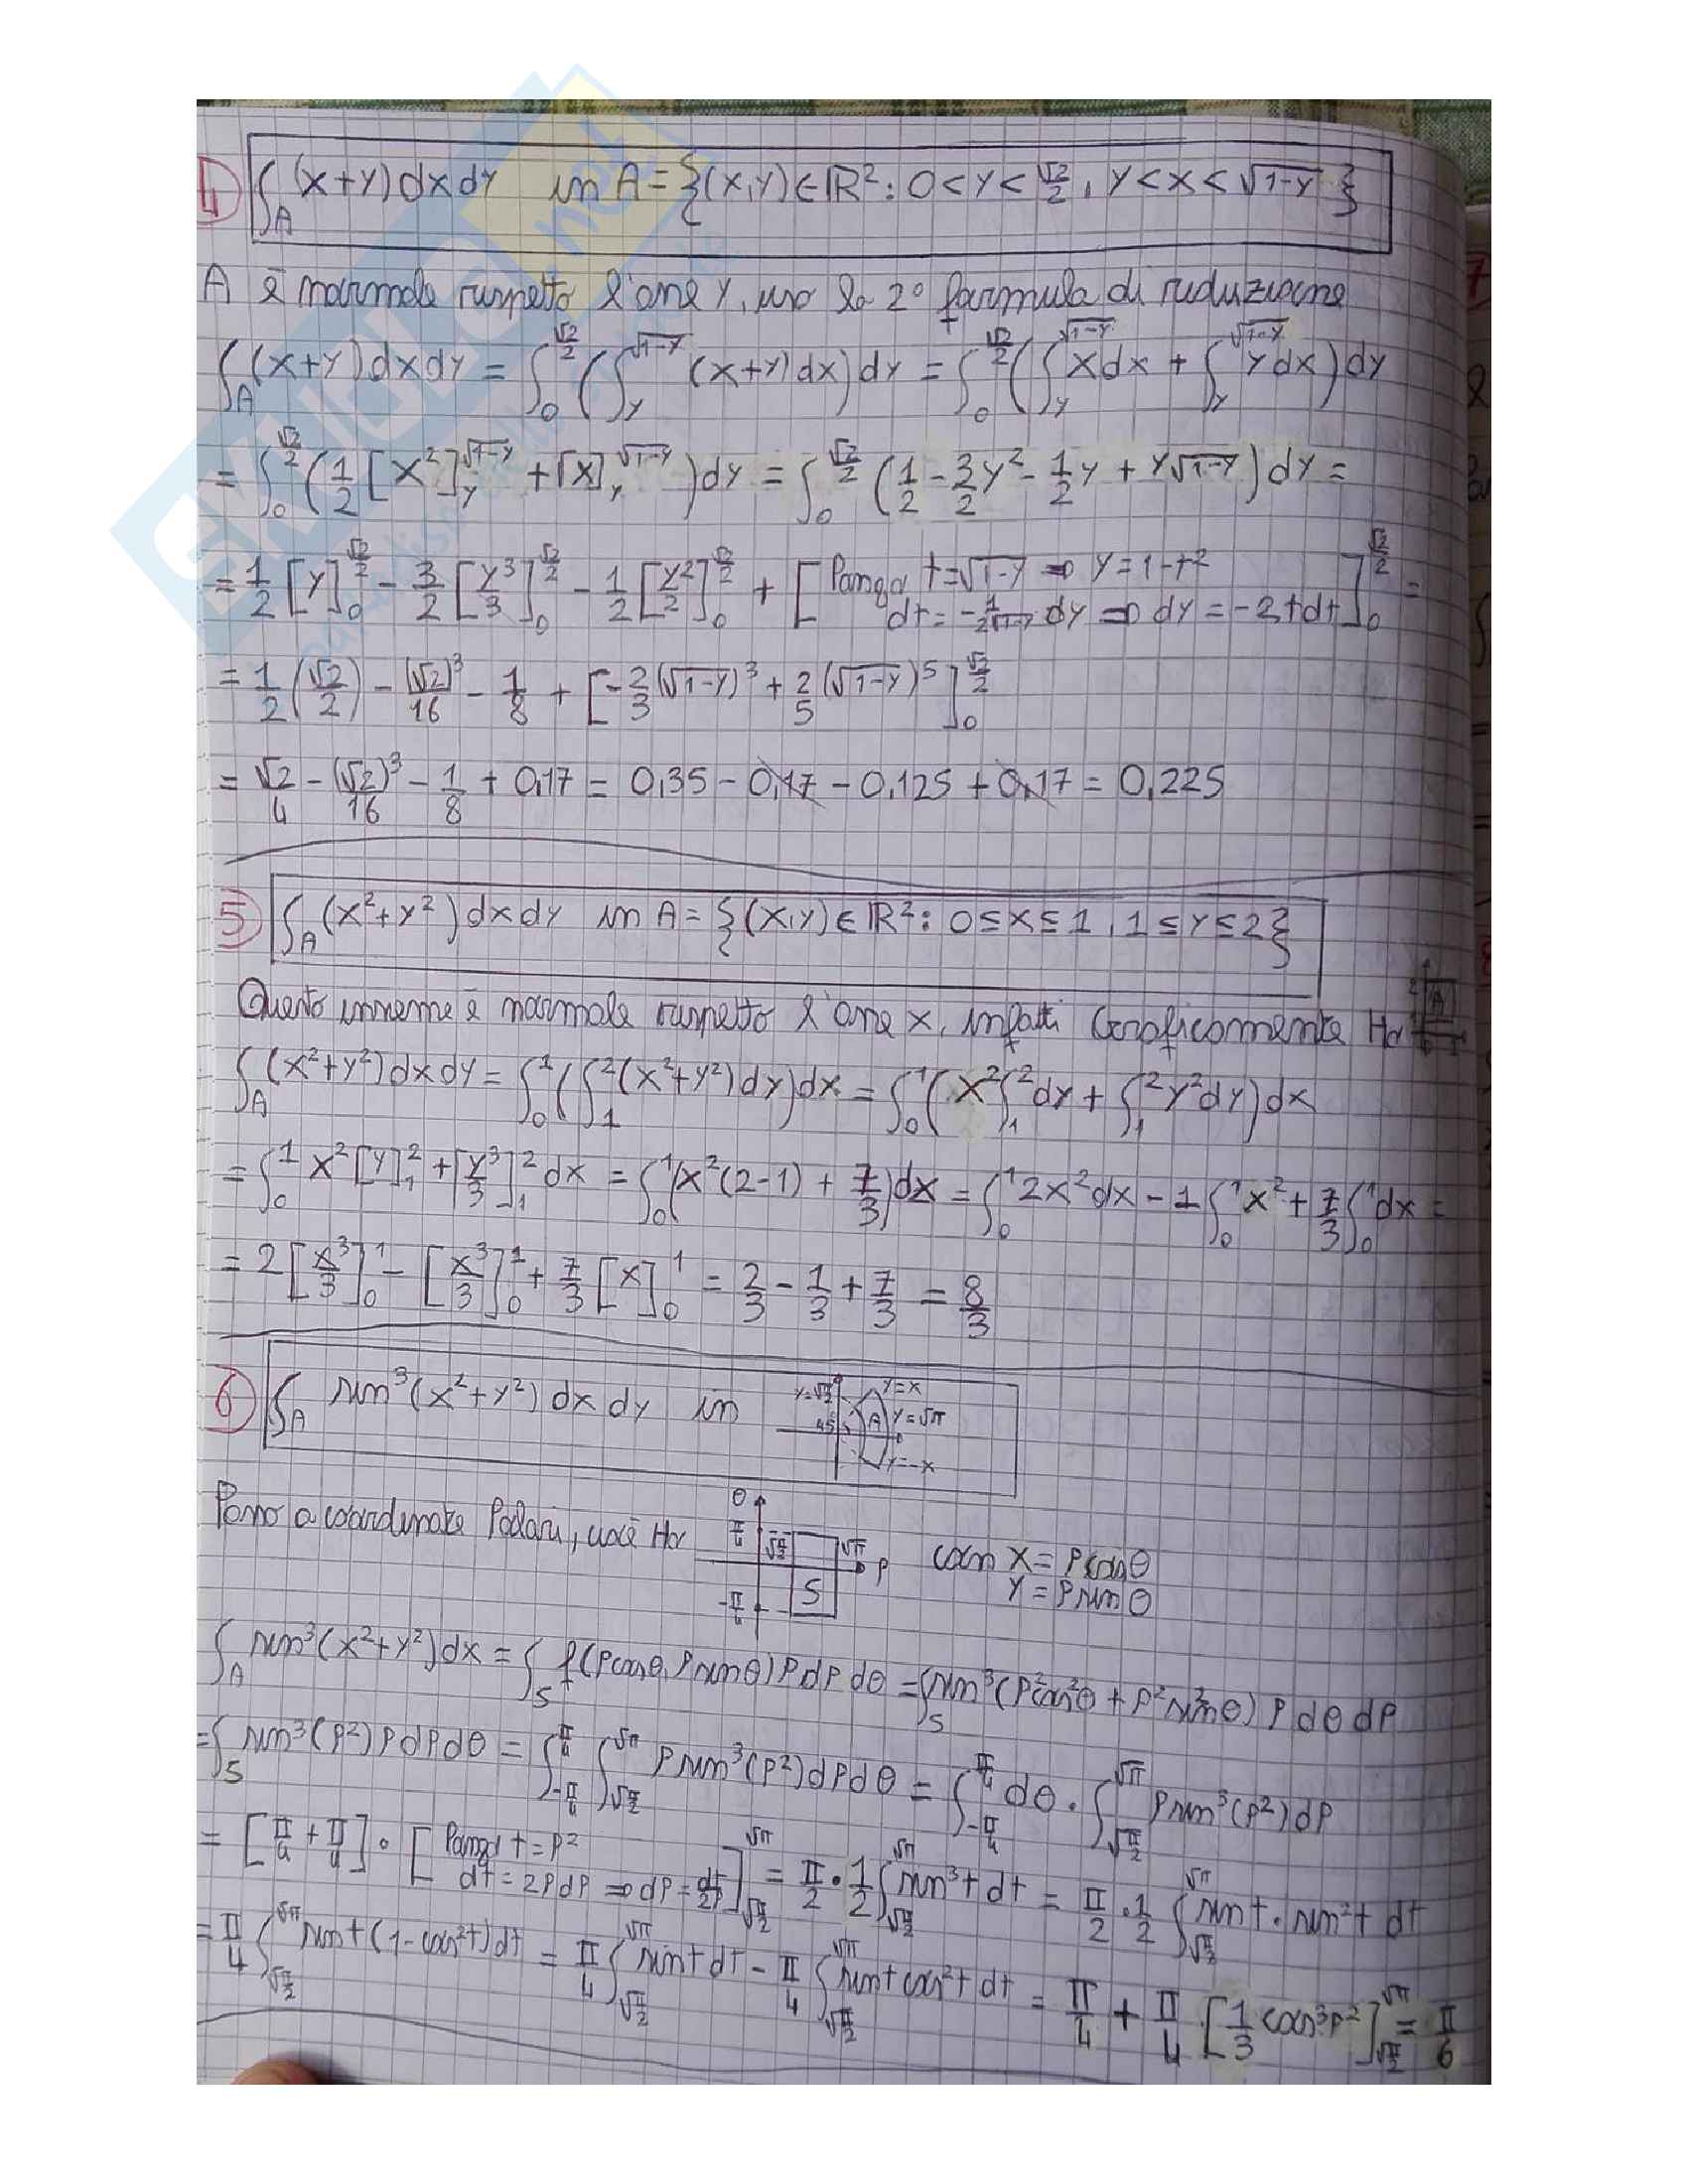 4) ∫_A (x+y) dx dy in A = {(x,y) ∈ ℝ²: 0<y<√2/2, y<x<√(1-y)}
A è normale rispetto l'asse y, uso la 2° formula di riduzione
∫_A (x+y) dx dy = ∫_0^{√2/2} (∫_y^{√(1-y)} (x+y) dx) dy = ∫_0^{√2/2} (∫_y^{√(1-y)} x dx + ∫_y^{√(1-y)} y dx) dy
= ∫_0^{√2/2} (1/2 [x²]_y^{√(1-y)} + [x]_y^{√(1-y)}) dy = ∫_0^{√2/2} (1/2 - 3/2 y² - 1/2 y + y√(1-y)) dy =
= 1/2 [y]_0^{√2/2} - 3/2 [y³/3]_0^{√2/2} - 1/2 [y²/2]_0^{√2/2} + [Pongo t=√(1-y) ⇒ y=1-t²
dt = -1/(2√(1-y)) dy ⇒ dy = -2t dt]_0^{√2/2} =
= 1/2 (√2/2) - (√2)³/16 - 1/8 + [-2/3 (√(1-y))³ + 2/5 (√(1-y))⁵]_0^{√2/2}
= √2/4 - (√2)³/16 - 1/8 + 0,17 = 0,35 - 0,17 - 0,125 + 0,17 = 0,225
5) ∫_A (x²+y²) dx dy in A = {(x,y) ∈ ℝ²: 0≤x≤1, 1≤y≤2}
Questo insieme è normale rispetto l'asse x, infatti Graficamente Ho
2 A
∫_A (x²+y²) dx dy = ∫_0^1 (∫_1^2 (x²+y²) dy) dx = ∫_0^1 (x² ∫_1^2 dy + ∫_1^2 y² dy) dx
= ∫_0^1 x² [y]_1^2 + [y³/3]_1^2 dx = ∫_0^1 (x²(2-1) + 7/3) dx = ∫_0^1 2x² dx - 1 ∫_0^1 x² + 7/3 ∫_0^1 dx =
= 2 [x³/3]_0^1 - [x³/3]_0^1 + 7/3 [x]_0^1 = 2/3 - 1/3 + 7/3 = 8/3
6) ∫_A sin³(x²+y²) dx dy in
y=x
A y=√π
y=-x
Passo a coordinate Polari, cioè Ho
θ π/4 √(π/2) √π ρ -π/4 S
con x = ρcosθ
y = ρsinθ
∫_A sin³(x²+y²) dx = ∫_S f(ρcosθ, ρsinθ) ρ dρ dθ = ∫_S sin³(ρ²cos²θ + ρ²sin²θ) ρ dθ dρ
= ∫_S sin³(ρ²) ρ dρ dθ = ∫_{-π/4}^{π/4} ∫_{√(π/2)}^{√π} ρ sin³(ρ²) dρ dθ = ∫_{-π/4}^{π/4} dθ · ∫_{√(π/2)}^{√π} ρ sin³(ρ²) dρ
= [π/4 + π/4] · [Pongo t=ρ²
dt = 2ρ dρ ⇒ dρ = dt/2ρ]_{√(π/2)}^{√π} = π/2 · 1/2 ∫_{√(π/2)}^{√π} sin³t dt = π/2 · 1/2 ∫_{√(π/2)}^{√π} sin t · sin²t dt
= π/4 ∫_{√(π/2)}^{√π} sin t (1-cos²t) dt = π/4 ∫_{√(π/2)}^{√π} sin t dt - π/4 ∫_{√(π/2)}^{√π} sin t cos²t dt = π/4 + π/4 · [1/3 cos³ρ²]_{√(π/2)}^{√π} = π/6